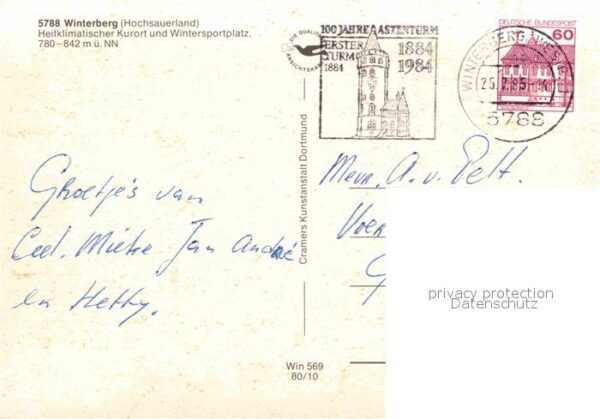 5788 Winterberg (Hochsauerland)
Heilklimatischer Kurort und Wintersportplatz.
780–842 m ü. NN
DIE QUALITÄTS
ANSICHTSKARTE
100 JAHRE ASTENTURM
ERSTER
TURM
1884
1884
1984
DEUTSCHE BUNDESPOST
60
WINTERBERG, WESTF
5788
Groetjes van
Mieke Jan André
en Hetty.
Cramers Kunstanstalt Dortmund
Mevr. A. v. Pelt.
privacy protection
Datenschutz
Win 569
80/10